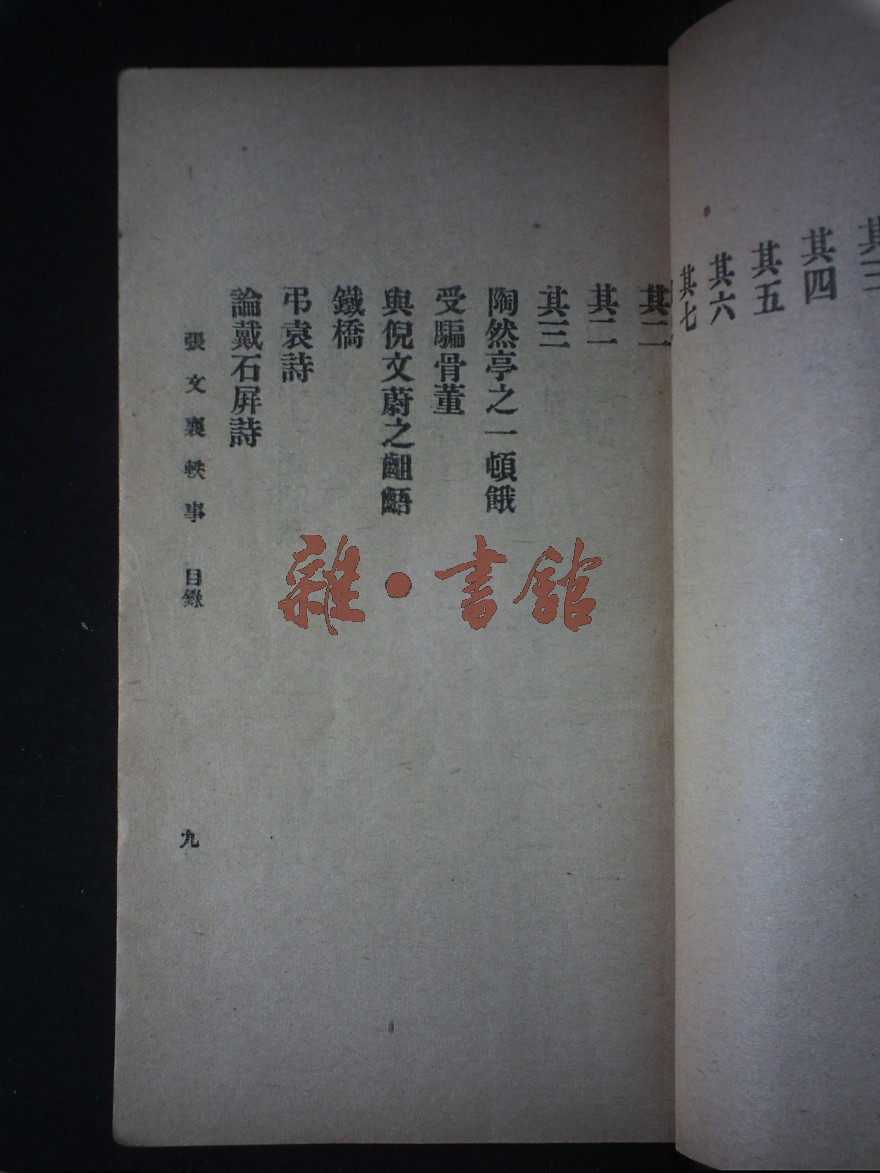 其四
其五
其六
其七
其二
其二
其三
陶然亭之一頓餓
受騙骨董
與倪文蔚之齟齬
鐵橋
弔袁詩
論戴石屏詩
張文襄軼事 目錄
九
雜·書館